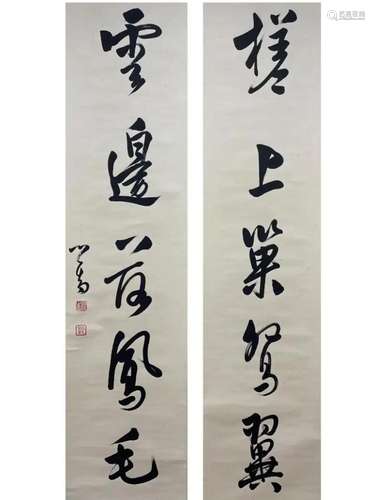 槎上巢鴛翼
雲邊落鳳毛
心畬